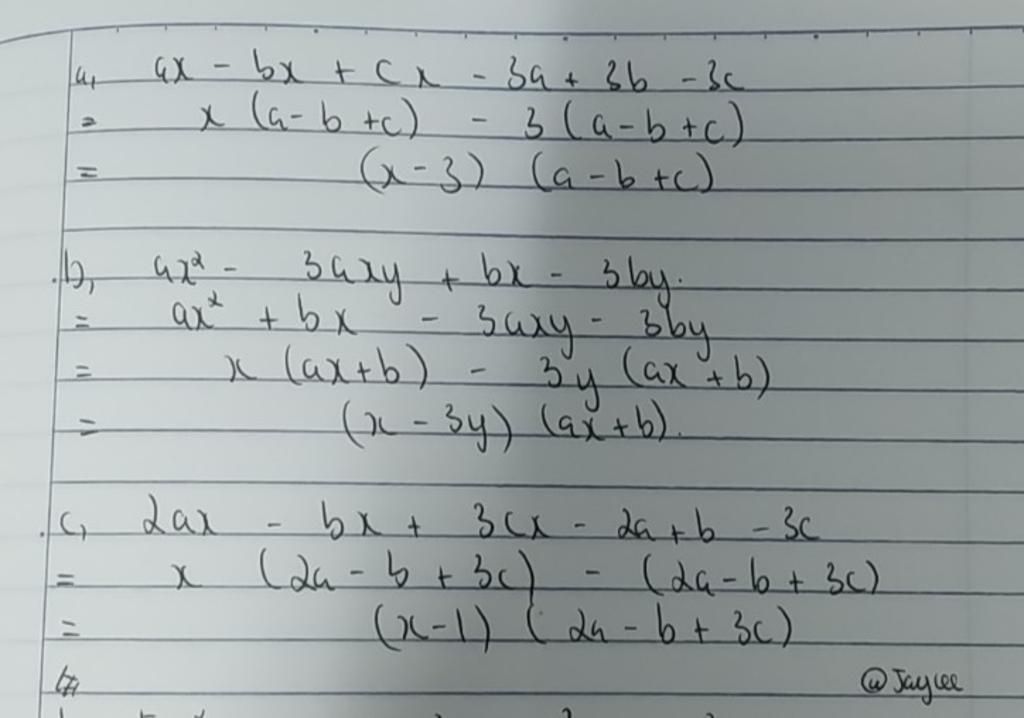 a, ax - bx + cx - 3a + 3b - 3c
= x (a - b + c) - 3 (a - b + c)
= (x - 3) (a - b + c)
b, ax² - 3axy + bx - 3by.
= ax² + bx - 3axy - 3by
= x (ax + b) - 3y (ax + b)
= (x - 3y) (ax + b).
c, 2ax - bx + 3cx - 2a + b - 3c
= x (2a - b + 3c) - (2a - b + 3c)
= (x - 1) (2a - b + 3c)
@Jaycee